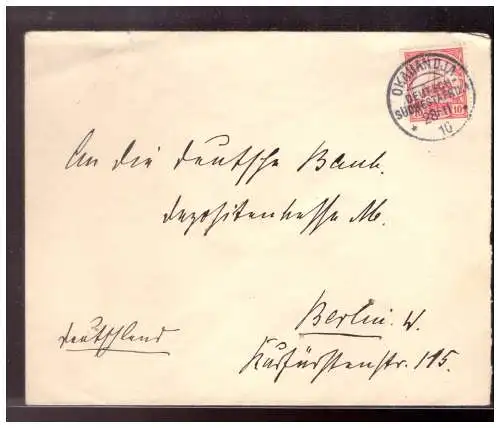 OKAHANDJA
DEUTSCH-
SÜDWESTAFRIKA
28.11
10
10
An die Deutsche Bank.
Depositenkasse M.
Berlin W.
Kurfürstenstr. 115.
Deutschland